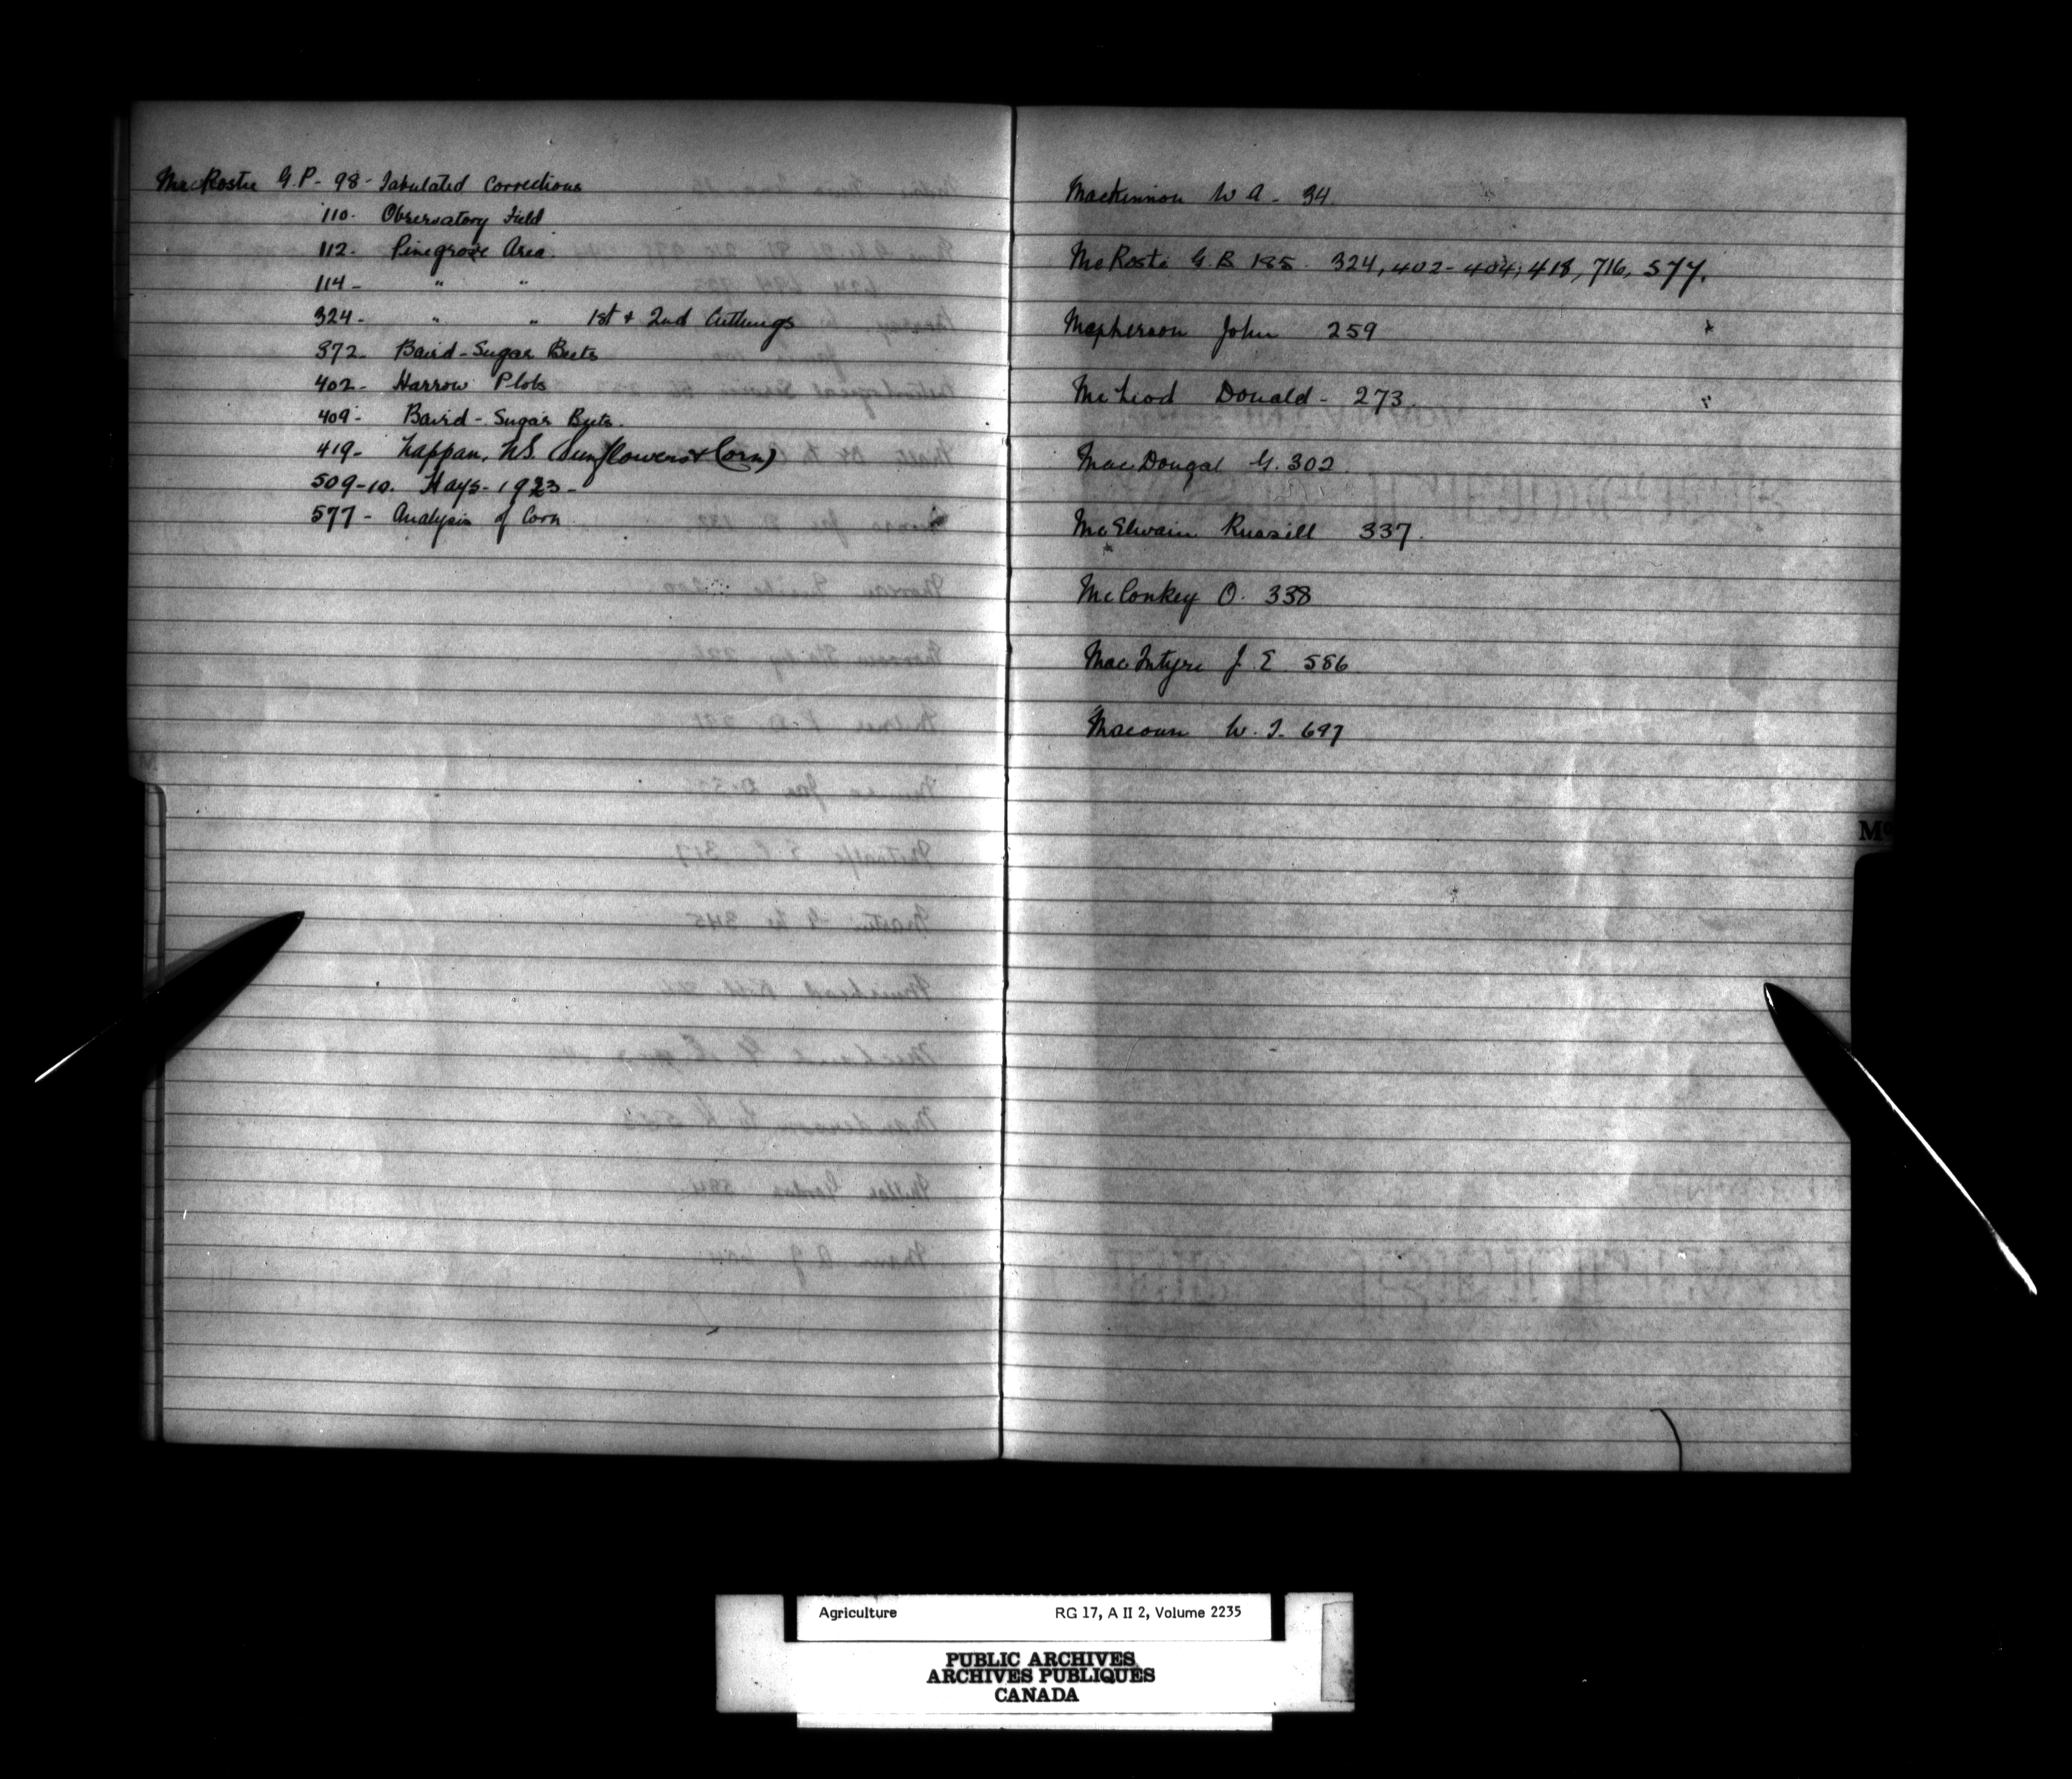 MacRostie G.P- 98- Tabulated Corrections
110- Observatory Field
112- Pinegrove Area
114- " "
324- " " 1st + 2nd Cuttings
372- Baird-Sugar Beets
402- Harrow Plots
409- Baird-Sugar Beets.
419- Nappan, N.S. (Sunflowers & Corn)
509-10. Hays-1923-
577- Analysis of Corn
MacKinnon W A - 34
McRostie G.B 185. 324, 402-404, 418, 716, 577.
Macpherson John 259
McLeod Donald - 273
MacDougal G. 302
McElwain Russill 337.
McConkey O. 338
MacIntyre J. E 586
Macoun W. T. 697
Mc
Agriculture RG 17, A II 2, Volume 2235
PUBLIC ARCHIVES
ARCHIVES PUBLIQUES
CANADA